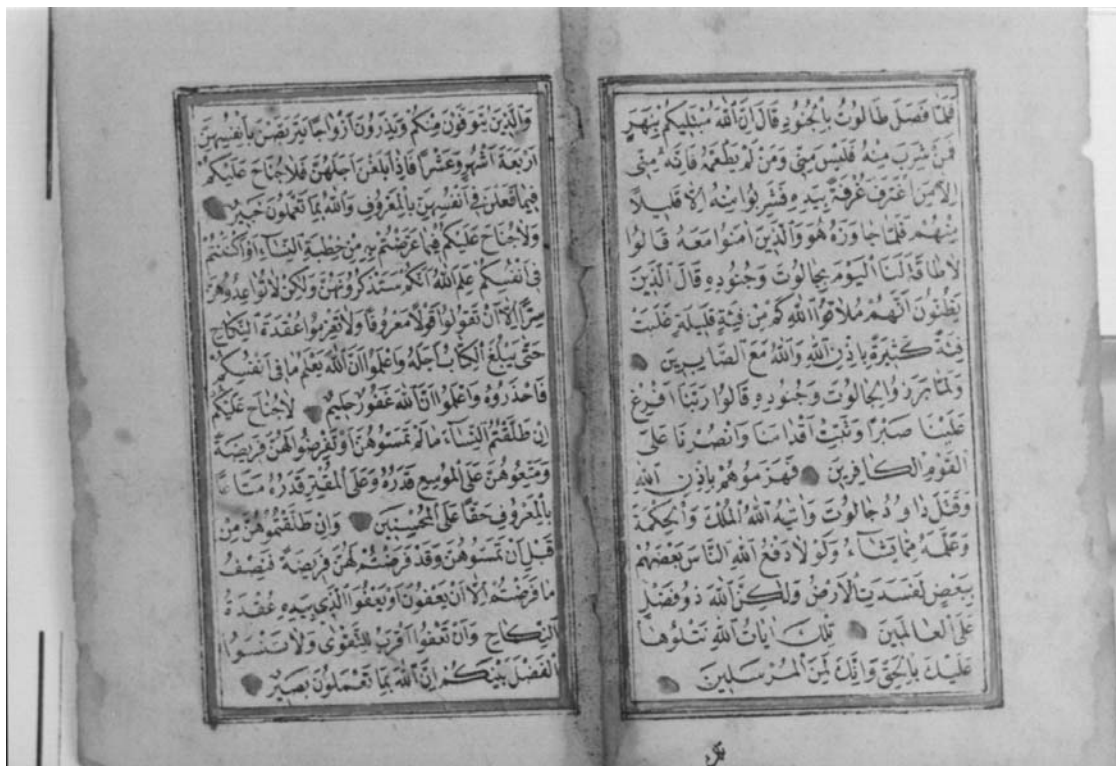 فَلَمَّا فَصَلَ طَالُوتُ بِالْجُنُودِ قَالَ اِنَّ اللّٰهَ مُبْتَلِيكُمْ بِنَهَرٍ
فَمَنْ شَرِبَ مِنْهُ فَلَيْسَ مِنِّى وَمَنْ لَمْ يَطْعَمْهُ فَاِنَّهُ مِنِّى
اِلَّا مَنِ اغْتَرَفَ غُرْفَةً بِيَدِهِ فَشَرِبُوا مِنْهُ اِلَّا قَلِيلًا
مِنْهُمْ فَلَمَّا جَاوَزَهُ هُوَ وَالَّذِينَ اٰمَنُوا مَعَهُ قَالُوا
لَا طَاقَةَ لَنَا الْيَوْمَ بِجَالُوتَ وَجُنُودِهِ قَالَ الَّذِينَ
يَظُنُّونَ اَنَّهُمْ مُلَاقُوا اللّٰهِ كَمْ مِنْ فِئَةٍ قَلِيلَةٍ غَلَبَتْ
فِئَةً كَثِيرَةً بِاِذْنِ اللّٰهِ وَاللّٰهُ مَعَ الصَّابِرِينَ
وَلَمَّا بَرَزُوا لِجَالُوتَ وَجُنُودِهِ قَالُوا رَبَّنَا اَفْرِغْ
عَلَيْنَا صَبْرًا وَثَبِّتْ اَقْدَامَنَا وَانْصُرْنَا عَلَى
الْقَوْمِ الْكَافِرِينَ فَهَزَمُوهُمْ بِاِذْنِ اللّٰهِ
وَقَتَلَ دَاوُدُ جَالُوتَ وَاٰتٰيهُ اللّٰهُ الْمُلْكَ وَالْحِكْمَةَ
وَعَلَّمَهُ مِمَّا يَشَآءُ وَلَوْلَا دَفْعُ اللّٰهِ النَّاسَ بَعْضَهُمْ
بِبَعْضٍ لَفَسَدَتِ الْاَرْضُ وَلٰكِنَّ اللّٰهَ ذُو فَضْلٍ
عَلَى الْعَالَمِينَ تِلْكَ اٰيَاتُ اللّٰهِ نَتْلُوهَا
عَلَيْكَ بِالْحَقِّ وَاِنَّكَ لَمِنَ الْمُرْسَلِينَ
تلك
وَالَّذِينَ يُتَوَفَّوْنَ مِنْكُمْ وَيَذَرُونَ اَزْوَاجًا يَتَرَبَّصْنَ بِاَنْفُسِهِنَّ
اَرْبَعَةَ اَشْهُرٍ وَعَشْرًا فَاِذَا بَلَغْنَ اَجَلَهُنَّ فَلَا جُنَاحَ عَلَيْكُمْ
فِيمَا فَعَلْنَ فِى اَنْفُسِهِنَّ بِالْمَعْرُوفِ وَاللّٰهُ بِمَا تَعْمَلُونَ خَبِيرٌ
وَلَا جُنَاحَ عَلَيْكُمْ فِيمَا عَرَّضْتُمْ بِهِ مِنْ خِطْبَةِ النِّسَآءِ اَوْ اَكْنَنْتُمْ
فِى اَنْفُسِكُمْ عَلِمَ اللّٰهُ اَنَّكُمْ سَتَذْكُرُونَهُنَّ وَلٰكِنْ لَا تُوَاعِدُوهُنَّ
سِرًّا اِلَّا اَنْ تَقُولُوا قَوْلًا مَعْرُوفًا وَلَا تَعْزِمُوا عُقْدَةَ النِّكَاحِ
حَتّٰى يَبْلُغَ الْكِتَابُ اَجَلَهُ وَاعْلَمُوا اَنَّ اللّٰهَ يَعْلَمُ مَا فِى اَنْفُسِكُمْ
فَاحْذَرُوهُ وَاعْلَمُوا اَنَّ اللّٰهَ غَفُورٌ حَلِيمٌ لَا جُنَاحَ عَلَيْكُمْ
اِنْ طَلَّقْتُمُ النِّسَآءَ مَا لَمْ تَمَسُّوهُنَّ اَوْ تَفْرِضُوا لَهُنَّ فَرِيضَةً
وَمَتِّعُوهُنَّ عَلَى الْمُوسِعِ قَدَرُهُ وَعَلَى الْمُقْتِرِ قَدَرُهُ مَتَاعًا
بِالْمَعْرُوفِ حَقًّا عَلَى الْمُحْسِنِينَ وَاِنْ طَلَّقْتُمُوهُنَّ مِنْ
قَبْلِ اَنْ تَمَسُّوهُنَّ وَقَدْ فَرَضْتُمْ لَهُنَّ فَرِيضَةً فَنِصْفُ
مَا فَرَضْتُمْ اِلَّا اَنْ يَعْفُونَ اَوْ يَعْفُوَا الَّذِى بِيَدِهِ عُقْدَةُ
النِّكَاحِ وَاَنْ تَعْفُوا اَقْرَبُ لِلتَّقْوٰى وَلَا تَنْسَوُا
الْفَضْلَ بَيْنَكُمْ اِنَّ اللّٰهَ بِمَا تَعْمَلُونَ بَصِيرٌ